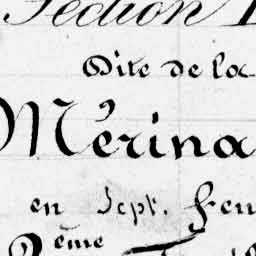 Section
Dite de la
Mérina
en Sept. feu
2ème